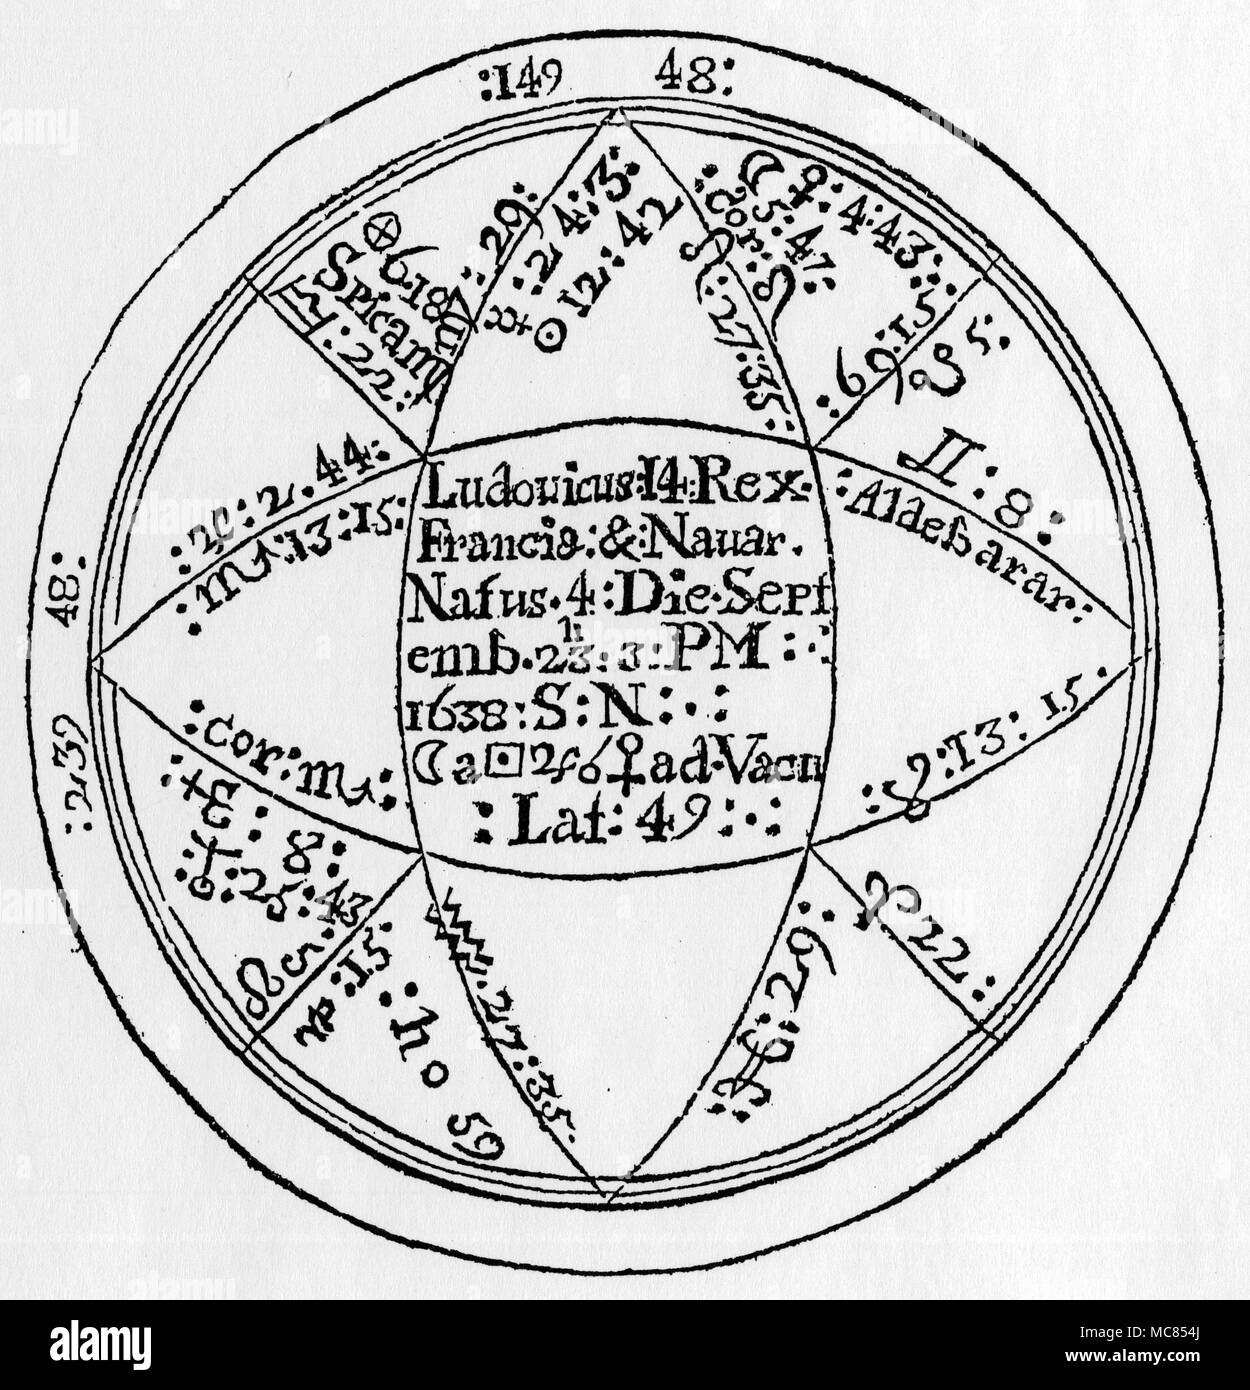 :149 48:
:29:
:24:3:
☉12:42
☽♀:4:43:
:25:47:
:cor:♌
♌:27:35:
:69:15
♋5:
⊗618
Spicam
:22:
:♃:2.44:
♏:13:15:
♊:8:
:Aldebarar:
48:
:239
Ludouicus:14:Rex.
Franciæ:&:Nauar.
Natus.4:Die.Sept
emb.23:3:PM:
1638:S:N:.:
☽a□♃☌♀ad.Vacu
:Lat:49:.:
:♉:13:15.
:cor:♏:
:8:
:♂:25:43
☊5:
♑:15:
:ho
59
♒.27:35.
:29:
♈22:
alamy
Image ID: MC854J
www.alamy.com